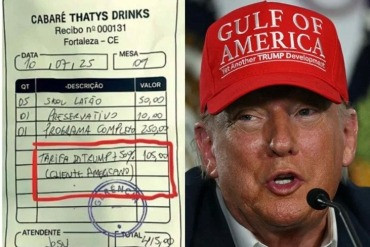 CABARÉ THATYS DRINKS
Recibo nº 000131
Fortaleza - CE
DATA MESA
10 / 07 / 25 09
QT DESCRIÇÃO VALOR
05 SKOL LATÃO 50,00
01 PRESERVATIVO 10,00
01 PROGRAMA COMPLETO 250,00
TARIFA DJTRUMP + 50% 105,00
(CLIENTE AMERICANO)
ATENDENTE TOTAL
415,00
GULF OF
AMERICA
Yet Another TRUMP Development